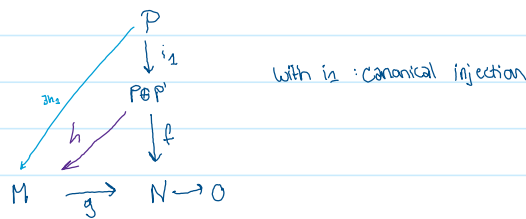 P
i₁
with i₁ : canonical injection
∃h₁
P⊕P'
h
f
M
g
N → O